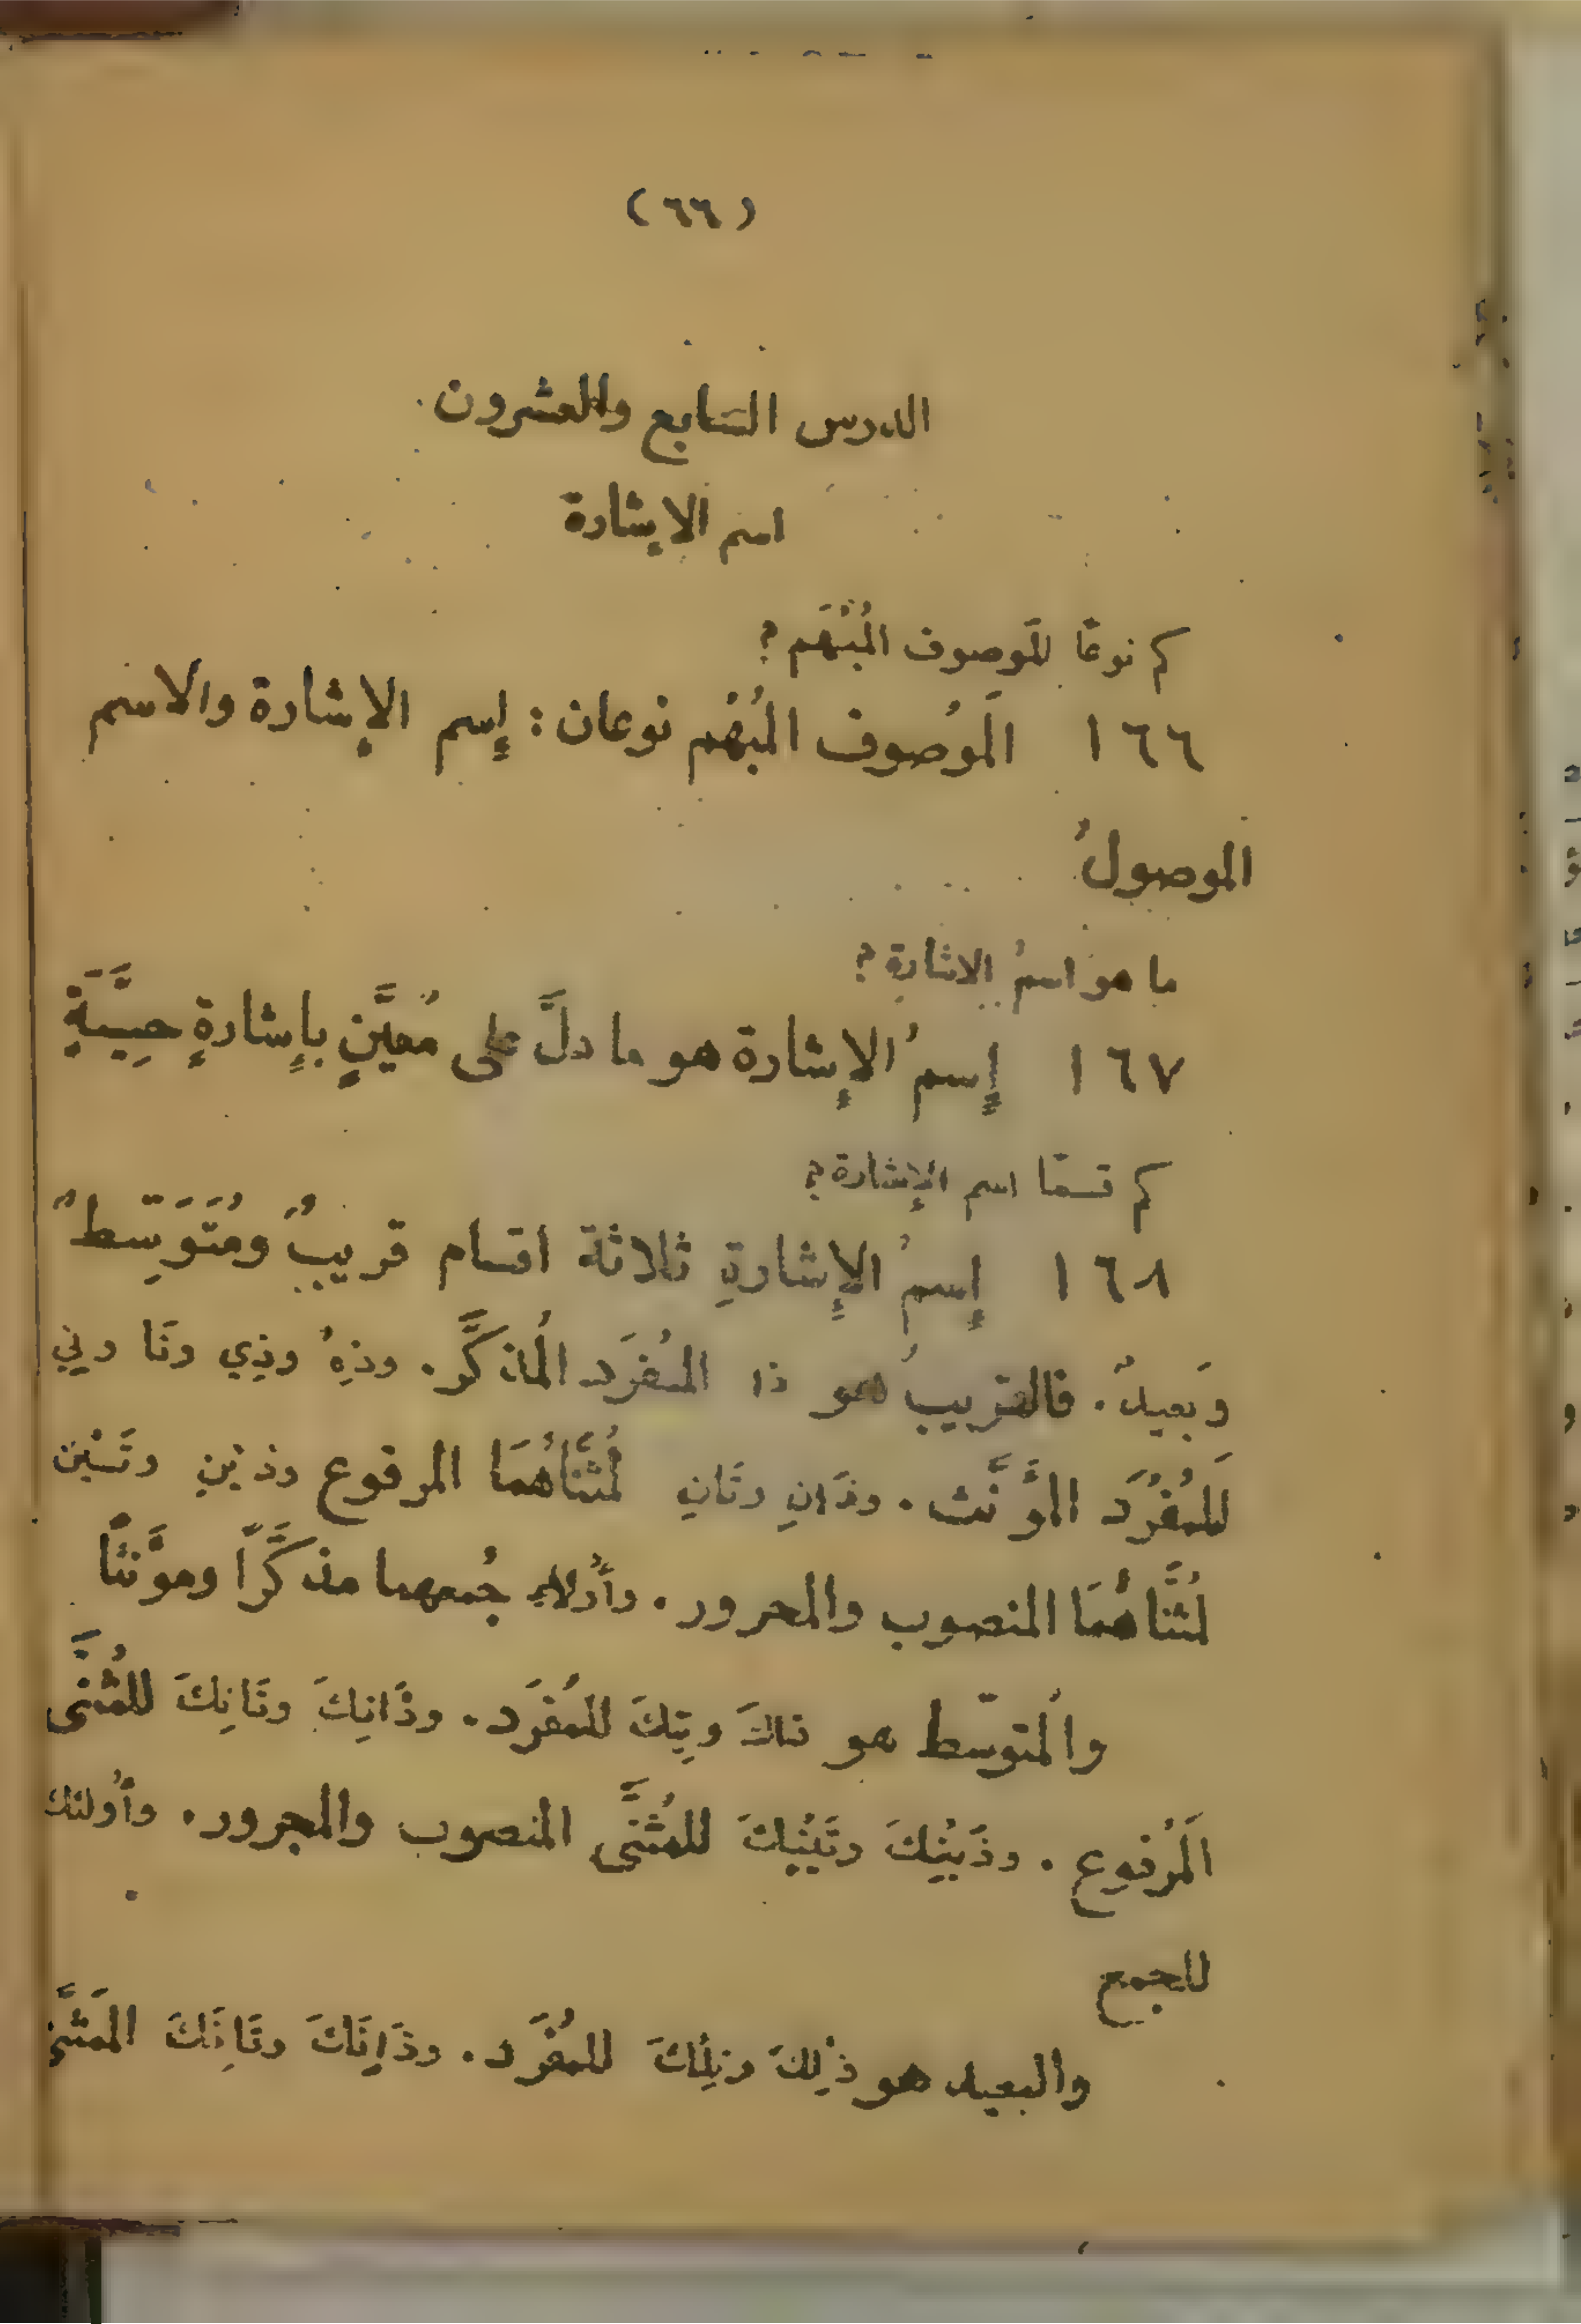 (٦٦)
الدرس السَّابع والعشرون
اسم الإِشارة
كم نوعًا للمَوصوف المُبْهَم؟
١٦٦ المَوْصوف المُبْهَم نوعان: إِسم الإِشارة والاسم
الموصولُ
ما هو اسمُ الاشارةِ؟
١٦٧ إِسمُ الإِشارة هو ما دلَّ على مُعيَّنٍ بإِشارةٍ حِسِّيَّةٍ
كم قسمًا اسم الإِشارة؟
١٦٨ إِسمُ الإِشارةِ ثلاثة اقسام قريبٌ ومُتَوَسِّطٌ
وَبعيدٌ. فالقريبُ هو ذا المُفرَد المُذكَّر. وذِهِ وذِي وتَا وتِي
لِلمُفْرَد المُؤَنَّث. وذَانِ وتَانِ لمُثَنَّاهُمَا المرفوع وذَيْنِ وتَيْنِ
لمُثَنَّاهُمَا المنصوب والمجرور. وأُولاءِ جُمعهما مذكَّرًا ومؤَنثًا
والمُتوسّط هو ذاكَ وتِيكَ للمُفرَد. وذَانِكَ وتَانِكَ للمُثَنَّى
المَرْفوع. وذَيْنِكَ وتَيْنِكَ للمُثَنَّى المنصوب والمجرور. وأُولئك
للجمع
والبعيد هو ذٰلِكَ وتِلْكَ للمُفْرَد. وذَانِّكَ وتَانِّكَ المُثَنَّى